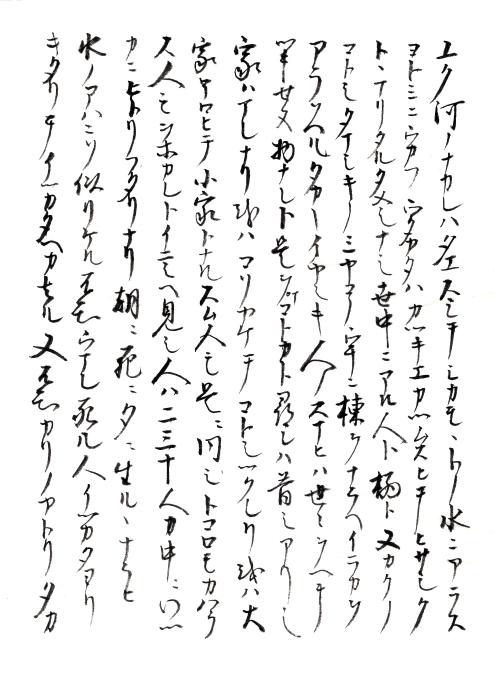 ユク河ノナカレハタエスシテシカモヽトノ水ニアラス
ヨトミニウカフウタカタハカツキエカツムスヒテヒサシク
トヽマリタルタメシナシ世中ニアル人ト栖ト又カクノ
コトシタマシキノミヤコノウチニ棟ヲナラヘイラカヲ
アラソヘルタカキイヤシキ人ノスマヒハ世々ヲヘテ
ツキセヌ物ナレト是ヲマコトカト尋レハ昔シアリシ
家ハマレナリ或ハコソヤケテコトシツクレリ或ハ大
家ホロヒテ小家トナルスム人モ是ニ同シトコロモカハラ
ス人モヲホカレトイニシヘ見シ人ハ二三十人カ中ニワツ
カニヒトリフタリナリ朝ニ死ニ夕ニ生ルヽナラヒ
水ノアハニソ似リケル不知ウマレ死ル人イツカタヨリ
キタリテイツカタヘカ去ル又不知カリノヤトリタカ